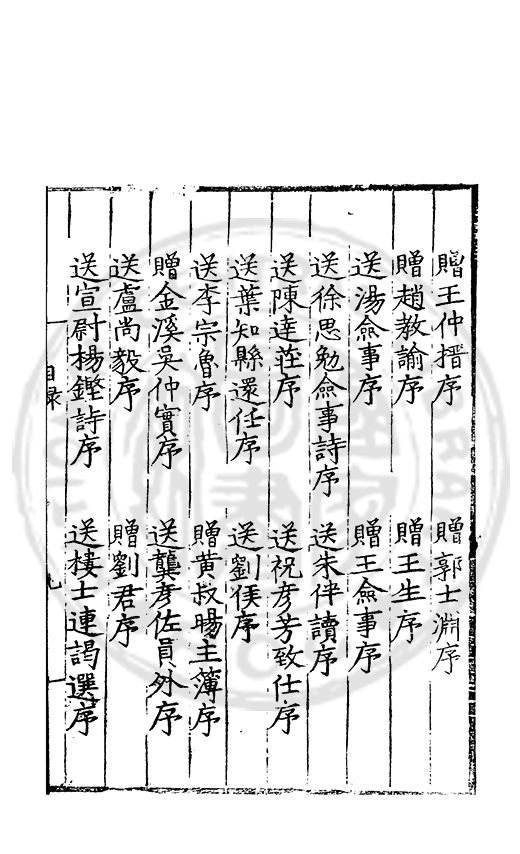 贈王仲搢序 贈郭士淵序
贈趙教諭序 贈王生序
送湯僉事序 贈王僉事序
送徐思勉僉事詩序 送朱伴讀序
送陳達莊序 送祝彥芳致仕序
送葉知縣還任序 送劉侯序
送李宗魯序 贈黃叔暘主簿序
贈金溪吳仲實序 送龔彥佐員外序
送盧尚毅序 贈劉君序
送宣尉楊鏗詩序 送樓士連謁選序
目录 九